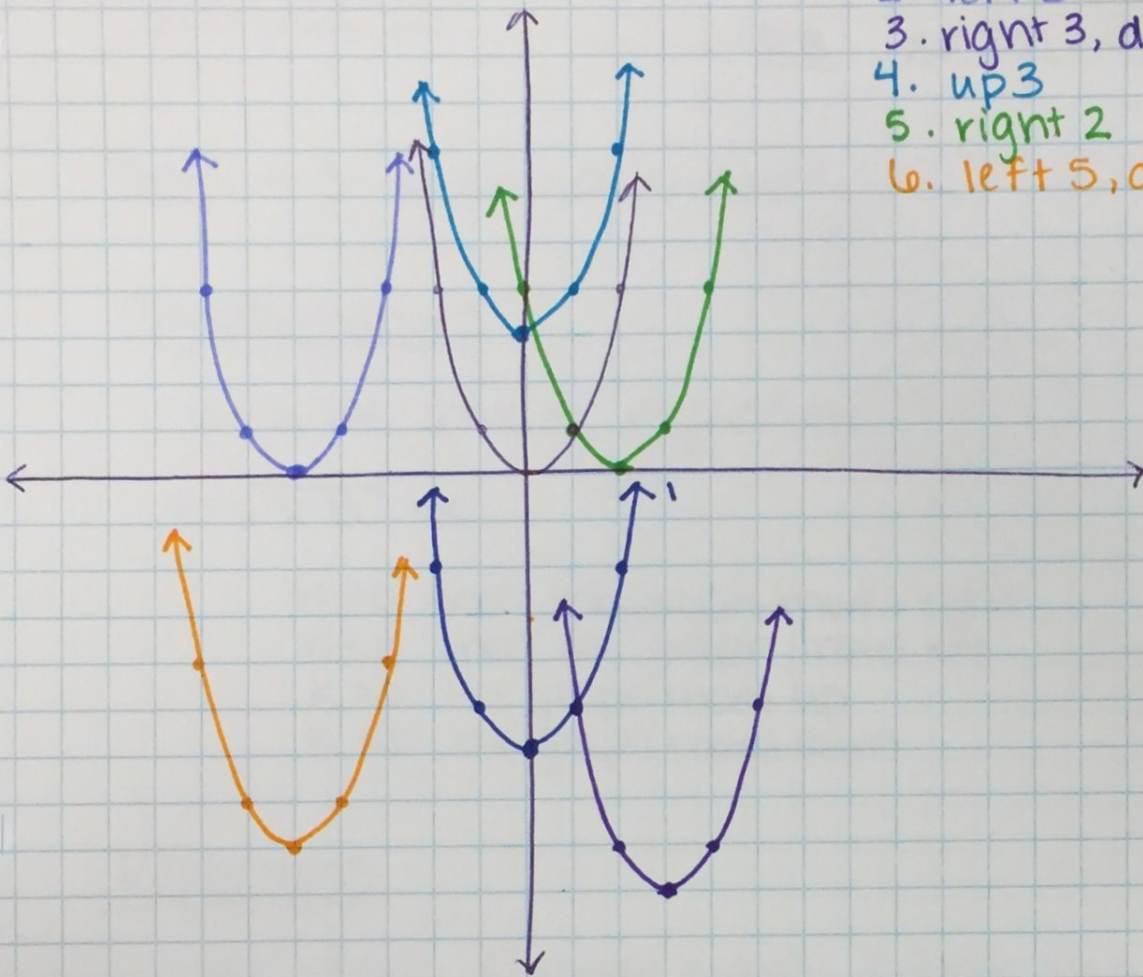 3. right 3, d
4. up 3
5. right 2
6. left 5,
1